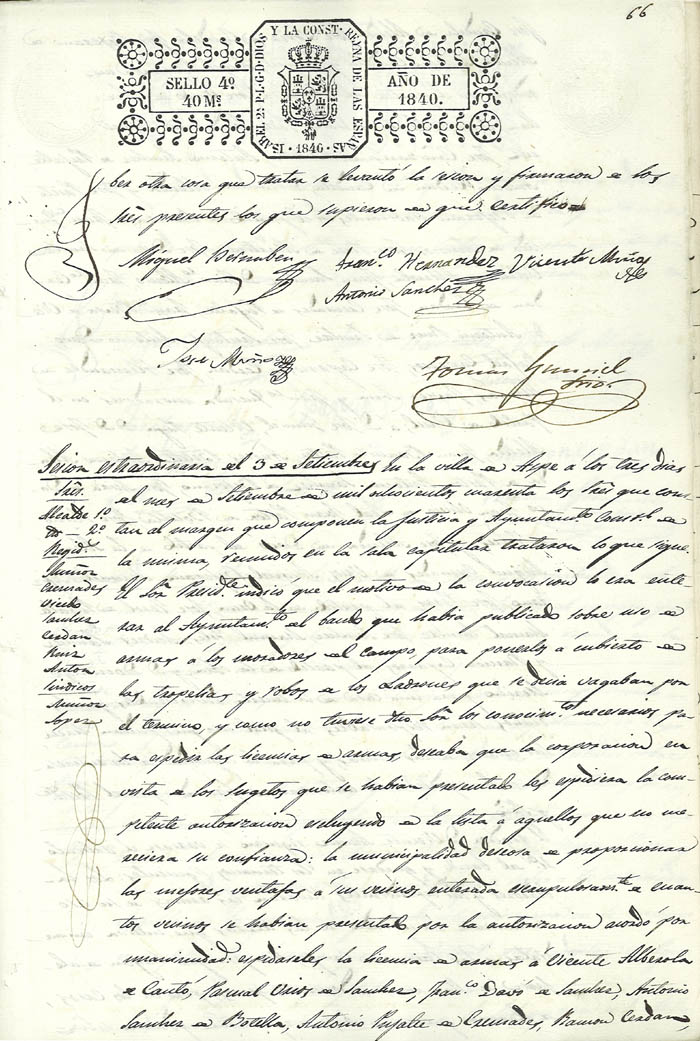 66
ISABEL 2ª P.L.G.D.DIOS Y LA CONST. REYNA DE LAS ESPAÑAS
SELLO 4º
40 Mˢ
AÑO DE
1840.
1840
ber otra cosa que tratar se levantó la sesion y firmaron de los
Sres presentes los que supieron de que certifico
Miguel
Franco Hernandez Vicente Muñoz
Antonio Sanchez
Jose Muñoz
Tomas
Srio.
Sesion extraordinaria del 3 de Setiembre
Sres.
Alcalde 1º
2º
Regids
Muñoz
Cremades
Vicedo
Sanchez
Cerdan
Ruiz
Anton
Sindicos
Muñoz
Lopez
En la villa de Aspe á los tres dias
del mes de Setiembre de mil ochocientos cuarenta los Sres que cons
tan al margen que componen la Justicia y Ayuntamto Constl de
la misma, reunidos en la sala capitular trataron lo que sigue.
El Sor Presidte indicó que el motivo de la convocacion lo era ente
rar al Ayuntamto del bando que habia publicado sobre uso de
armas á los moradores del campo, para ponerlos á cubierto de
las tropelias y robos de los Ladrones que se decia vagaban por
el termino, y como no tuviese dho Sor los conocimtos necesarios pa
ra espedir las licencias de armas, deseaba que la corporacion en
vista de los sugetos que se habian presentado les espidiera la com
petente autorizacion escluyendo de la lista á aquellos que no me
reciera su confianza: la municipalidad deseosa de proporcionar
las mejores ventajas á sus vecinos enterada escrupulosamte de cuan
tos vecinos se habian presentado por la autorizacion acordó por
unanimidad: espidaseles la licencia de armas á Vicente Alberola
de Cantó, Pascual de Sanchez, Franco Davó de Sanchez, Antonio
Sanchez de Botella, Antonio Pujalte de Cremades, Ramon Cerdan,